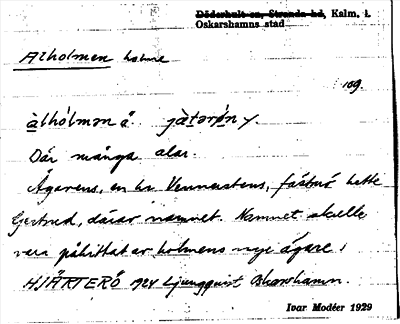 Döderhult sn, Stranda hd, Kalm. l.
Oskarshamns stad
Alholmen holme
169.
àlhólmən å. jä̀tərö́n y.
Där många alar.
Ägarens, en hr Vennerstens, fästmö hette
Gertrud, därav namnet. Namnet skulle
vara påhittat av holmens nye ägare!
HJÄRTERÖ 1924 Ljungquist Oskarshamn.
Ivar Modéer 1929